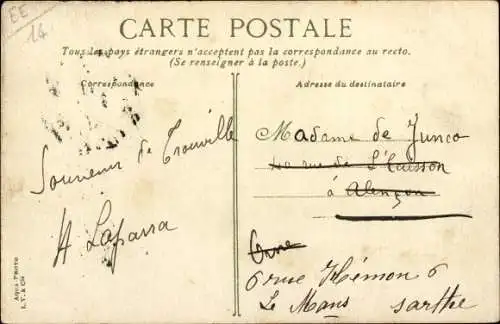 EE
14
CARTE POSTALE
Tous les pays étrangers n'acceptent pas la correspondance au recto.
(Se renseigner à la poste.)
Correspondance
Adresse du destinataire
Souvenir de Trouville
A Laparra
Madame de Junco
rue de L'
à Alençon
Orne
6 rue Hémon 6
Le Mans sarthe
Aqua-Photo
L. V. & Cie